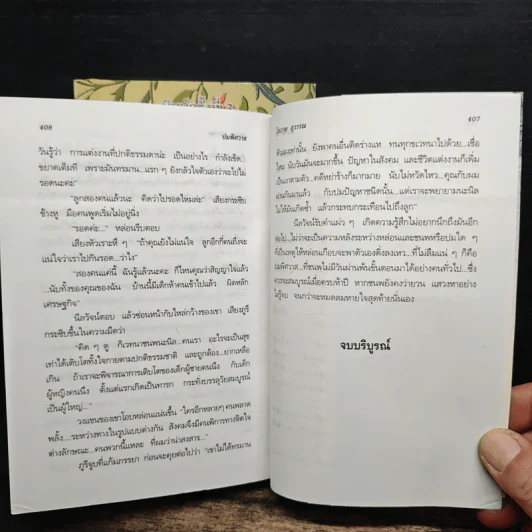 408
ปมพิศวาส
วันรู้ว่า การแต่งงานที่ปกติธรรมดาน่ะ เป็นอย่างไร กำลังเข็ด...
ขยาดเต็มที่ เพราะมันทรมาน...แรก ๆ ยังกลัวใจตัวเองว่าจะไปไม่
รอดนะคะ"
"ลูกสองคนแล้วนะ คิดว่าไปรอดไหมล่ะ" เสียงกระซิบ
ข้างหู มือคนพูดเริ่มไม่อยู่นิ่ง
"รอดค่ะ..." หล่อนรีบตอบ
เสียงหัวเราะหึ ๆ "ถ้าคุณยังไม่แน่ใจ ลูกอีกกี่คนถึงจะ
แน่ใจว่าเราไปกันรอด...ว่าไง"
"สองคนแค่นี้ ฉันรู้แล้วนะคะ ก็ไหนคุณว่าสัญญาใจแล้ว
...นับทั้งของคุณของฉัน บ้านนี้มีเด็กห้าคนเข้าไปแล้ว ผิดหลัก
เศรษฐกิจ"
นีลวัจน์ตอบ แล้วซ่อนหน้ากับไหล่กว้างของเขา เสียงภูริ
กระซิบขึ้นในความมืดว่า
"คิด ๆ ดู ก็เวทนาชนพนะนีล...คนเรา อะไรจะเป็นสุข
เท่าได้เติบโตทั้งใจกายตามปกติธรรมชาติ และถูกต้อง...ยากเหลือ
เกิน ถ้าเราจะพิจารณาการเติบโตของเด็กผู้ชายคนนึง กับเด็ก
ผู้หญิงคนนึง ตั้งแต่แรกเกิดเป็นทารก กระทั่งบรรลุวัยสมบูรณ์
เป็นผู้ใหญ่..."
วงแขนของเขาโอบหล่อนแน่นขึ้น "ใครอีกหลายๆ คนพลาด
พลั้ง...ระหว่างทางในรูปแบบต่างกัน สังคมจึงมีคนพิการทางจิตใจ
ต่างลักษณะ...คนพวกนี้แหละ ที่ผมว่าน่าสงสาร..."
ภูริจูบที่แก้มภรรยา ก่อนจะคุยต่อไปว่า "เขาไม่ได้ทรมาน
407
สุวรรณ
ตนเองเท่านั้น ยังพาคนอื่นติดร่างแห ทนทุกขเวทนาไปด้วย...เชื่อ
ไหม นับวันมันจะมากขึ้น ปัญหาในสังคม และชีวิตแต่งงานก็เพิ่ม
เป็นเงาตามตัว...คดีหย่าร้างก็มากมาย นับไม่หวัดไหว...คุณก็บผม
ผ่านกันมาแล้ว กับปมปัญหาชนิดนั้น...แต่เราจะพยายามนะนีล
ไม่ให้มันเกิดซ้ำ แล้วกระทบกระเทือนไปถึงลูก"
นีลวัจน์รับคำแผ่ว ๆ เกิดความรู้สึกไม่อยากนึกถึงมันอีก
ต่อไป...ไม่ว่าจะเป็นความหลังระหว่างหล่อนและชนพหรือปมใด ๆ
ที่เป็นเหตุให้หล่อนเกือบจะพาตัวเองดิ่งลงเหว...ที่ไม่ลืมแน่ ๆ ก็คือ
จะไม่มีวันผ่านพ้นขั้นตอนมาได้อย่างคนทั่วไป...ซึ่ง
ควรจะสมบูรณ์เมื่อครบห้าปี หากชนพยังคงว่ายวน แสวงหาอย่าง
ไม่รู้จบ จนกว่าจะหมดลมหายใจสุดท้ายนั่นเอง
จบบริบูรณ์